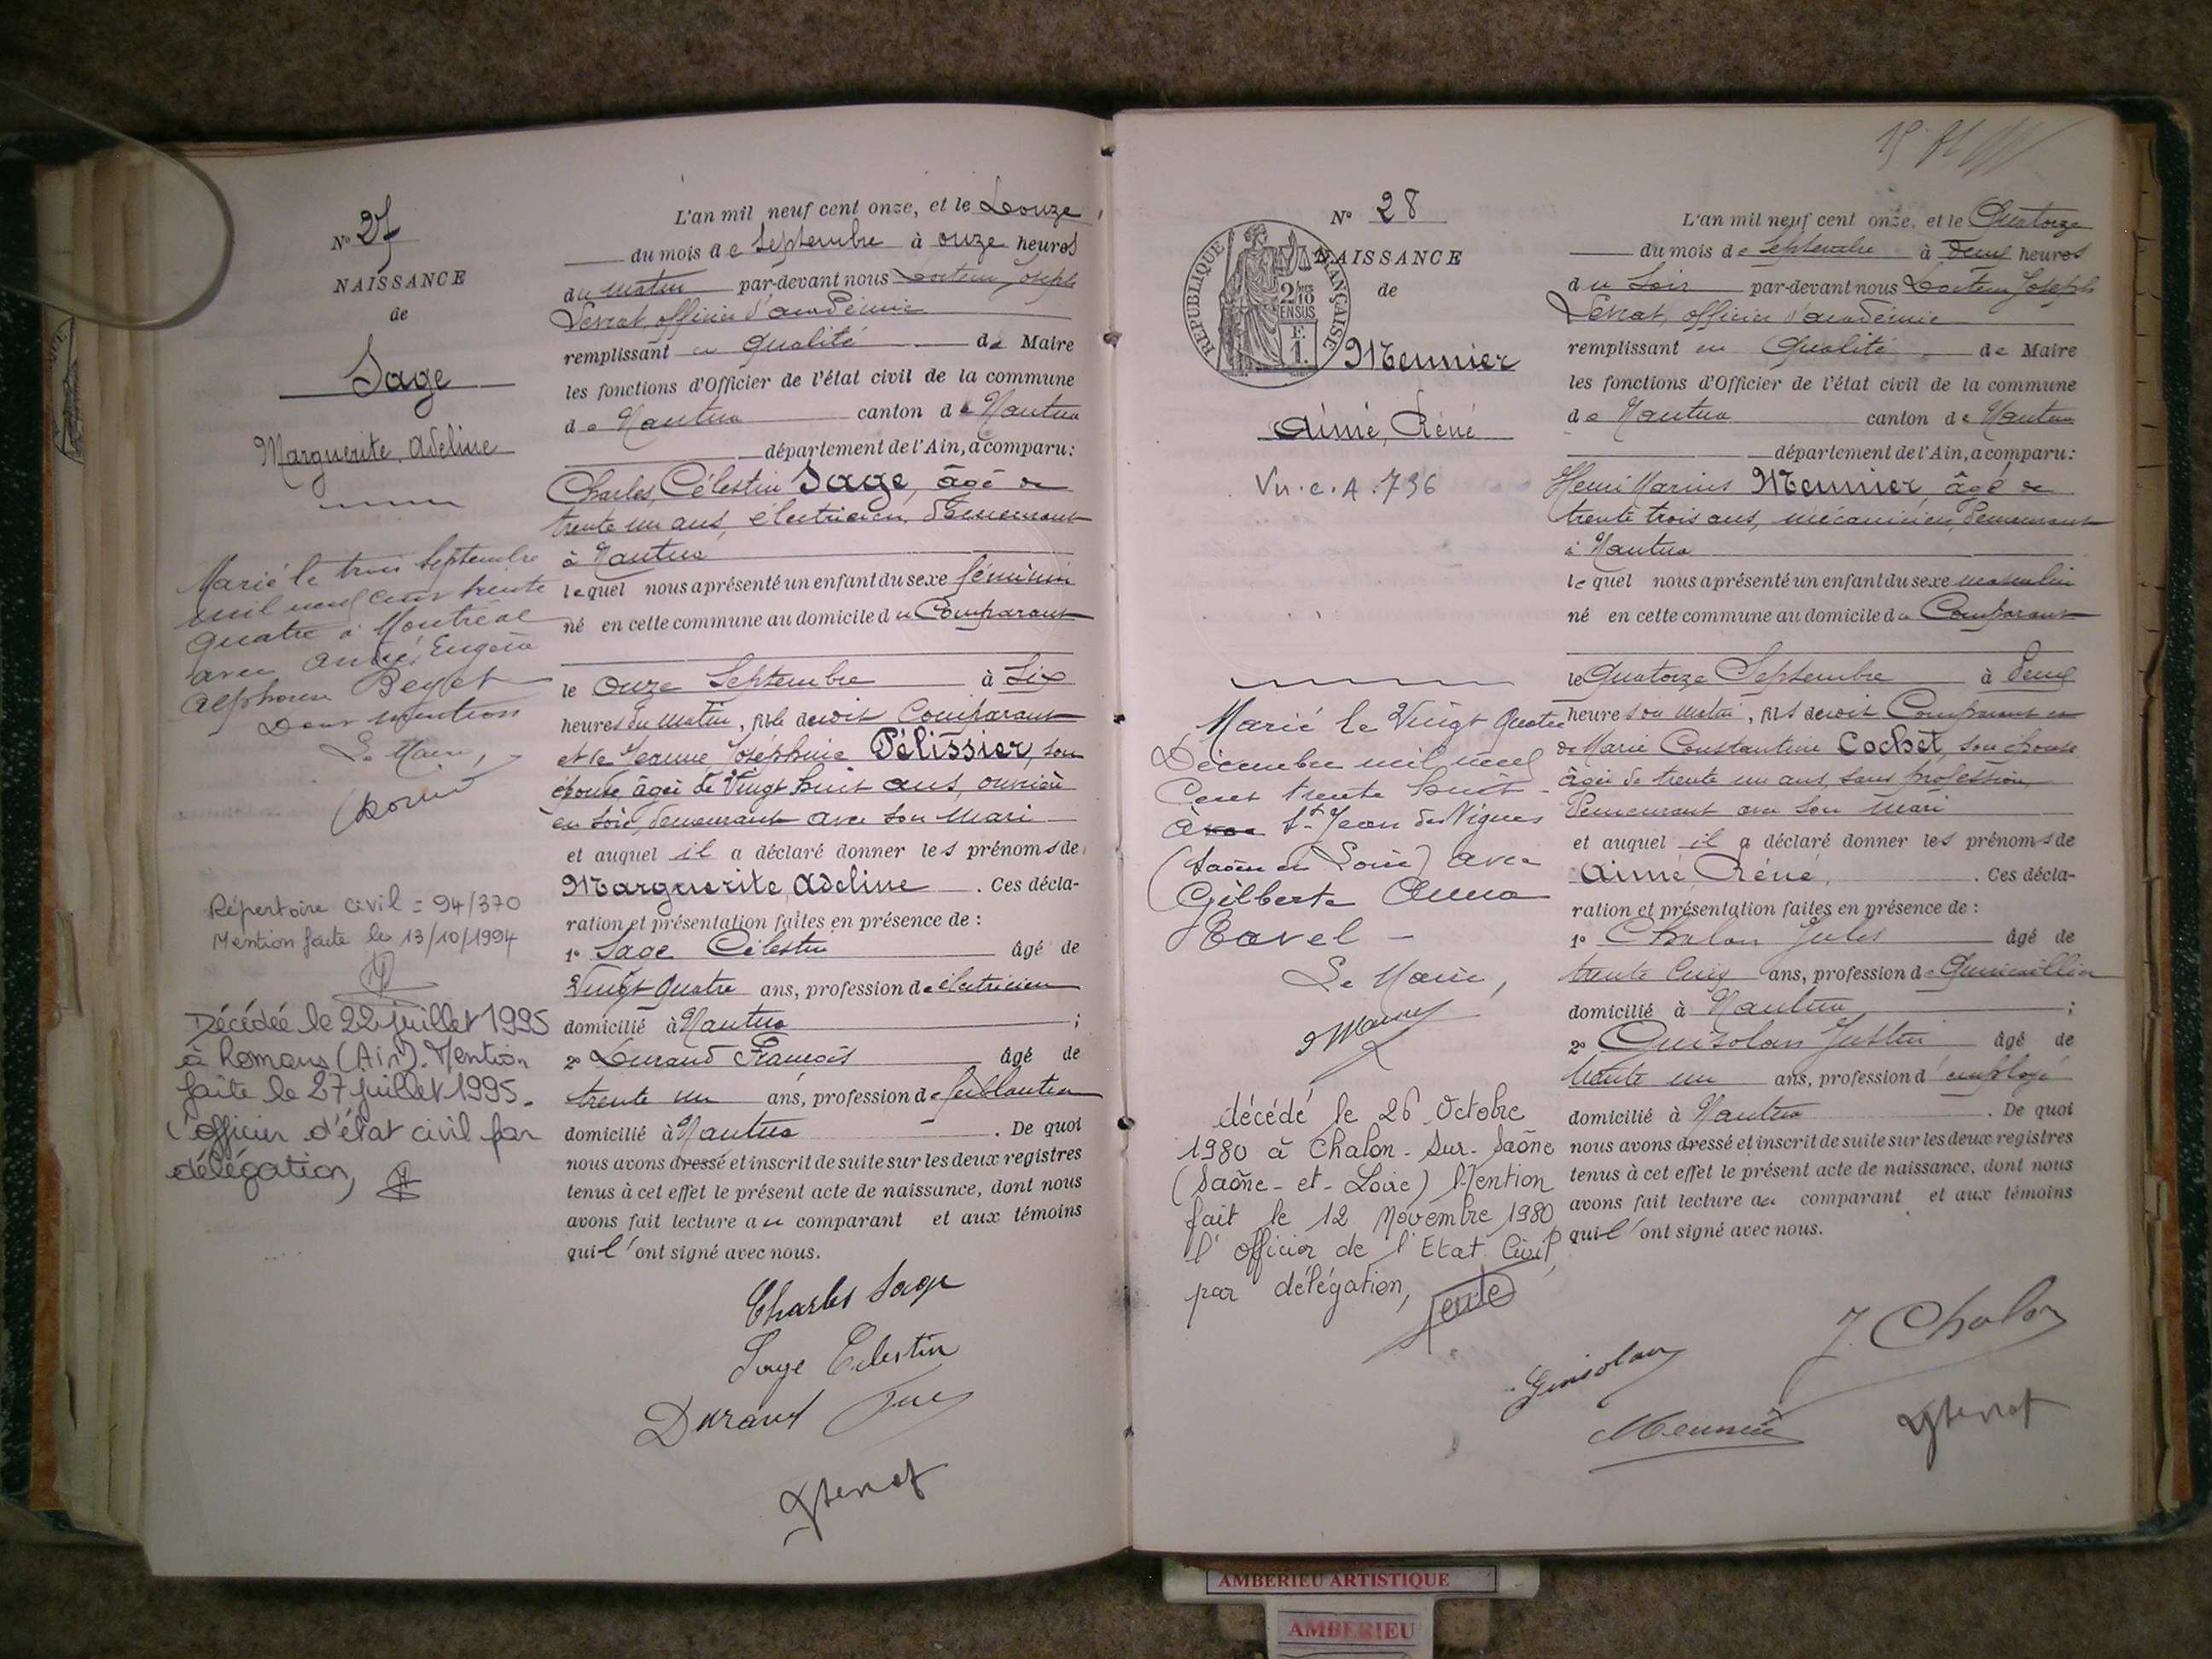 N° 27
NAISSANCE
de
Sage
Marguerite, Adeline
Marié le trois Septembre
mil neuf cent trente
quatre à Montréal
avec André, Eugène
Alphonse Beyet
Dont mention
Le Maire,
Répertoire civil = 94/370
Mention faite le 13/10/1994
Décédée le 22 juillet 1995
à Romans (Ain). Mention
faite le 27 juillet 1995.
l'officier d'état civil par
délégation,
L'an mil neuf cent onze, et le Douze
du mois de Septembre à onze heures
du matin par-devant nous Docteur Joseph
Levrat, officier d'académie
remplissant en qualité de Maire
les fonctions d'Officier de l'état civil de la commune
de Nantua canton de Nantua
département de l'Ain, a comparu:
Charles, Célestin Sage, âgé de
trente un ans, électricien, demeurant
à Nantua
lequel nous a présenté un enfant du sexe féminin
né en cette commune au domicile du Comparant
le Onze Septembre à Six
heures du matin, fille dudit Comparant
et de Jeanne Joséphine Pélissier, son
épouse, âgée de Vingt huit ans, ouvrière
en soie, demeurant avec son mari
et auquel il a déclaré donner les prénoms de
Marguerite, Adeline. Ces décla-
ration et présentation faites en présence de :
1° Sage Célestin âgé de
Vingt Quatre ans, profession de électricien
domicilié à Nantua ;
2° Durand François âgé de
trente un ans, profession de ferblantier
domicilié à Nantua. De quoi
nous avons dressé et inscrit de suite sur les deux registres
tenus à cet effet le présent acte de naissance, dont nous
avons fait lecture au comparant et aux témoins
qui l'ont signé avec nous.
Charles Sage
Sage Célestin
Durand
N° 28
NAISSANCE
de
REPUBLIQUE FRANÇAISE
2/10
EN SUS
F.
1.
Meunier
Aimé, Réné
Vu.c.A.736
Marié le Vingt Quatre
Décembre mil neuf
Cent trente huit
à St Jean des Vignes
(Saône et Loire) avec
Gilberte Anna
Ravel
Le Maire,
décédé le 26 Octobre
1980 à Chalon-Sur-Saône
(Saône-et-Loire) Mention
fait le 12 Novembre 1980
l'officier de l'Etat Civil,
par délégation,
L'an mil neuf cent onze, et le Quatorze
du mois de Septembre à deux heures
du Soir par-devant nous Docteur Joseph
Levrat, officier d'académie
remplissant en Qualité de Maire
les fonctions d'Officier de l'état civil de la commune
de Nantua canton de Nantua
département de l'Ain, a comparu:
Henri Marius Meunier, âgé de
trente trois ans, mécanicien, demeurant
à Nantua
lequel nous a présenté un enfant du sexe masculin
né en cette commune au domicile du Comparant
le Quatorze Septembre à deux
heures du matin, fils dudit Comparant et
de Marie Constantine Cochet, son épouse
âgée de trente un ans, sans profession,
demeurant avec son mari
et auquel il a déclaré donner les prénoms de
Aimé, Réné, . Ces décla-
ration et présentation faites en présence de :
1° Chalon Jules âgé de
trente cinq ans, profession de Quincaillier
domicilié à Nantua ;
2° Guisolan Justin âgé de
trente un ans, profession d'employé
domicilié à Nantua . De quoi
nous avons dressé et inscrit de suite sur les deux registres
tenus à cet effet le présent acte de naissance, dont nous
avons fait lecture au comparant et aux témoins
qui l'ont signé avec nous.
J. Chalon
Guisolan
Meunier
AMBERIEU ARTISTIQUE
AMBERIEU